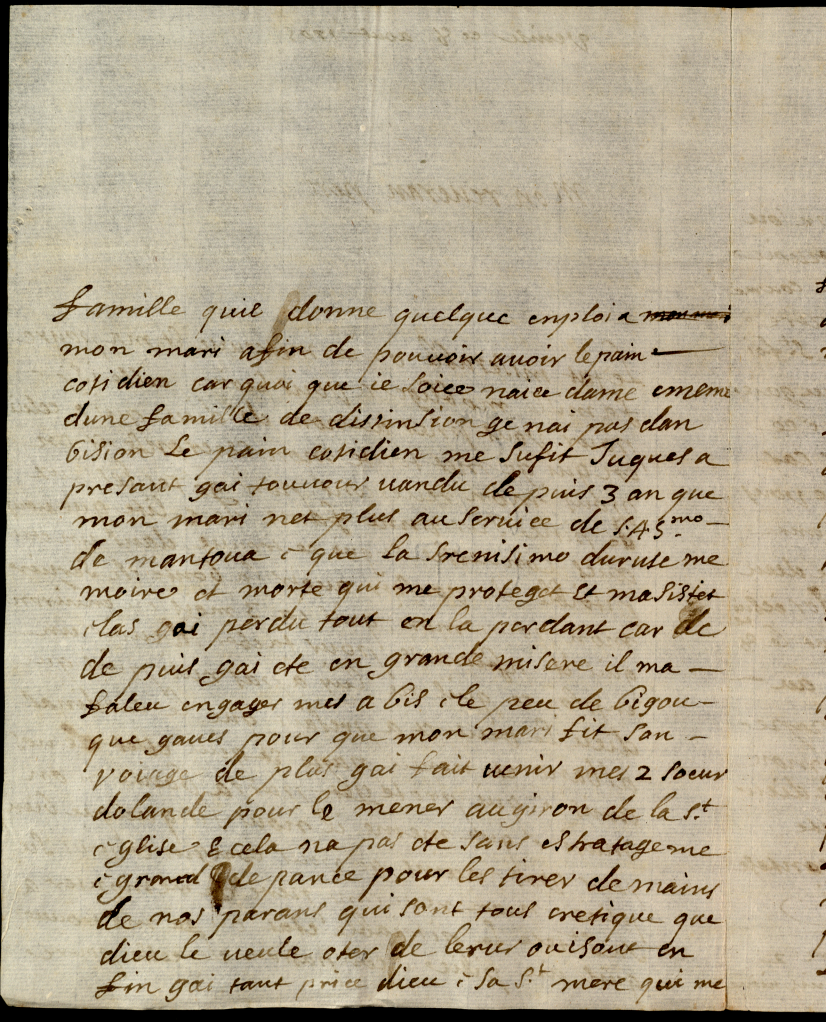 famille quil donne quelque enploi a
mon mari afin de pouvoir avoir le pain
cotidien car quoi que ie soice naice dame e meme
dune famille de distinsion ge nai pas dan
bision Le pain cotidien me sufit Juques a
presant gai touuour uandu de puis 3 an que
mon mari net plus au seruice de S.A.S.mo
de mantoua e que la srenisimo duruse me
moire et morte qui me proteget et masistet
elas gai perdu tout en la perdant car de
de puis gai ete en grande misere il ma
faleu engager mes a bis e le peu de bigou
que gaues pour que mon mari fit son
voiage de plus gai fait uenir mes 2 soeur
dolande pour le mener au giron de la s.t
eglise & cela na pas ete sans estratageme
e grand de pance pour les tirer de mains
de nos parans qui sont tous eretique que
dieu le ueule oter de lerur ou isont en
fin gai tant price dieu e sa s.t mere qui me